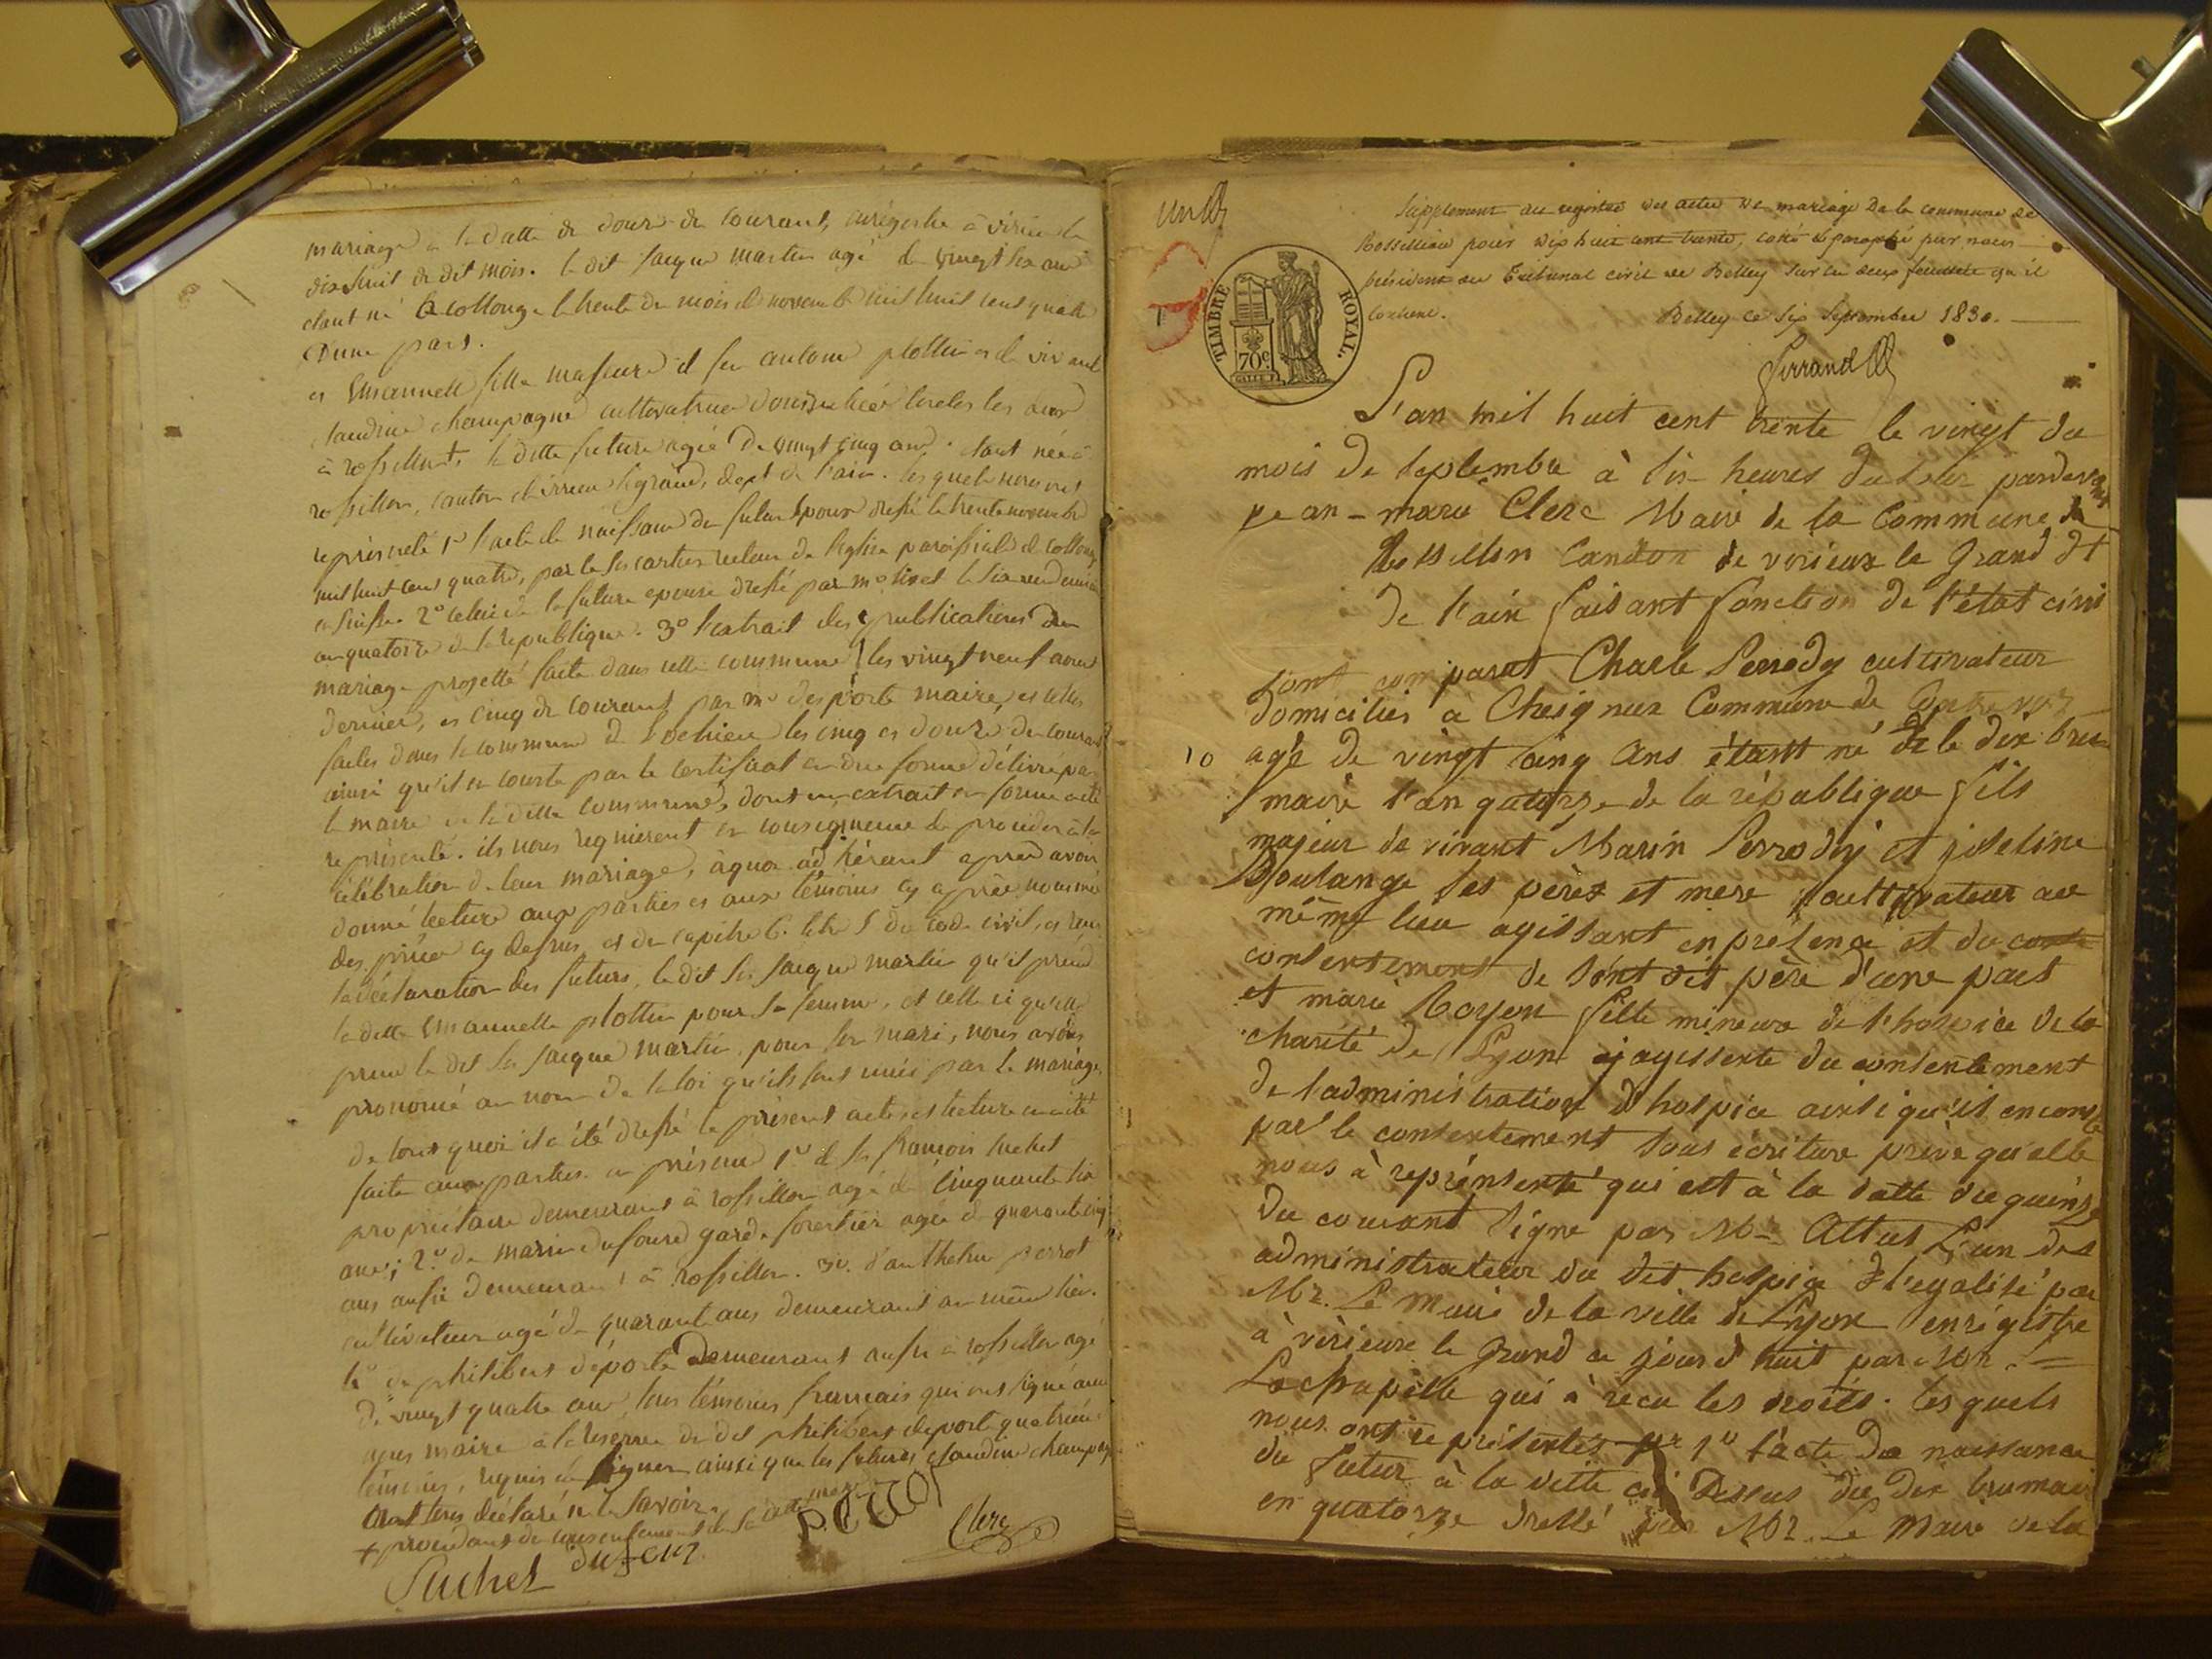 mariage à la datte de douze du courant, enrégistré à virieu le
dixhuit du dit mois. le dit jacque martin agé de vingt six ans
étant né à collonge le trente du mois de novembre mil huit cent quatre
D'une part.
et Emannuelle fille majeure de feu antoine plottin et de vivant
claudine champagne cultivatrice domiciliée toutes les deux
à rossillon, la ditte future agée de vingt cinq ans. étant née à
rossillon, canton de virieu le grand, dept de l'ain. les quels nous ont
représenté 1° l'acte de naissance du futur époux dressé le trente novembre
mil huit cent quatre, par le curé de l'église paroissiale de collonge
en suisse. 2° celui de la future epouse dressé par mr le six vendemiaire
an quatorze de la république. 3° l'extrait des publications du
mariage projetté faite dans cette commune les vingt neuf aout
dernier, et cinq du courant par mr desporte maire, et celles
faites dans la commune de les cinq et douze du courant
ainsi qu'il en conste par le certificat en due forme délivré par
le maire de la ditte commune, dont un extrait en forme a été
représenté. ils nous requièrent en conséquence de procéder à la
célébration de leur mariage, à quoi adhérant après avoir
donné lecture aux parties et aux témoins cy après nommés
des pièces cy dessus, et du capitre 6. titre 5 du code civil, et reçu
la déclaration des futurs, le dit sr jacque martin qu'il prend
la ditte Emannuelle plottin pour sa femme, et celle ci qu'elle
prend le dit sr jacque martin pour son mari, nous avons
prononcé au nom de la loi qu'ils sont unis par le mariage
de tout quoi il a été dressé le présent acte et lecture en a été
faite aux parties. en présence 1° de sr françois suchet
propriétaire demeurant à rossillon agé de cinquante six
ans; 2° de marin dufour garde forestier agé de quarante cinq
ans aussi demeurant à rossillon. 3° d'anthelme perrot
cultivateur agé de quarante ans demeurant au même lieu.
4° de philibert déporte demeurant aussi à rossillon agé
de vingt quatre ans tous témoins français qui ont signé avec
nous maire à la réserve du dit philibert deporte quatrième
témoin, requis de signer ainsi que les futurs, claudine champagne
ont tous déclaré ne le savoir.
+ procédant du consentement de sa ditte mère.
Suchet dufour Perrot Clerc
un
Supplement au registre des actes de mariage de la commune de
Rossillion pour dix huit cent trente, coté & paraphé par nous
président au Tribunal civil de Belley sur les deux feuillets qu'il
contient. Belley ce six Septembre 1830.
Ferrand
TIMBRE ROYAL.
70c.
L'an mil huit cent trente le vingt du
mois de septembre à six heures du soir pardevant
jean-marie Clerc Maire de la Commune de
Rossillon Canton de virieux le Grand dt
de l'ain faisant fonction de l'état civil
sont comparut Charle Perrody cultivateur
domicilies à Cheignieu Commune de
10 agé de vingt cinq ans étant né le dix bru-
maire l'an quatorze de la république fils
majeur de vivant Marin Perrody et joseline
Boulange ses pères et mere cultivateur au
même lieu agissant en présence et du conte
consentement de sont dit père d'une part
et marie Royon fille mineure de l'hospice de la
charité de Lyon agissente du consentement
de l'administration d'hospice ainsi qu'il en conste
par le consentement sous écriture privé qu'elle
nous à représenté qui est à la datte du quinze
du courant signe par Mr. Attus L'un des
administrateur du dit hospice & l'egalisé par
Mr. Le Maire de la ville de Lyon enrégistre
à vérieux le Grand ce jourd'huit par Mr. =
Lachapelle qui à recu les droits. les quels
nous ont représentés 1° l'acte de naissance
du futur à la ditte ci Dessus du dix brumair
en quatorze dressé par Mr. Le Maire de la